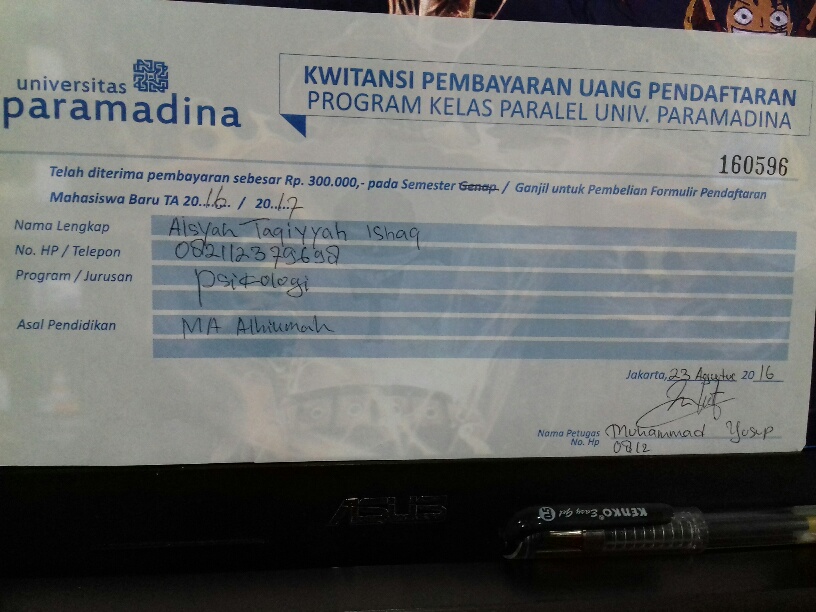 universitas
paramadina
KWITANSI PEMBAYARAN UANG PENDAFTARAN
PROGRAM KELAS PARALEL UNIV. PARAMADINA
160596
Telah diterima pembayaran sebesar Rp. 300.000,- pada Semester Genap / Ganjil untuk Pembelian Formulir Pendaftaran
Mahasiswa Baru TA 20.16. / 20.17
Nama Lengkap Aisyah Taqiyyah Ishaq
No. HP / Telepon 082112379698
Program / Jurusan psikologi
Asal Pendidikan MA Alhikmah
Jakarta, 23 Agustus 2016
Nama Petugas Muhammad Yosup
No. Hp 0812
ASUS
KENKO Easy Gel